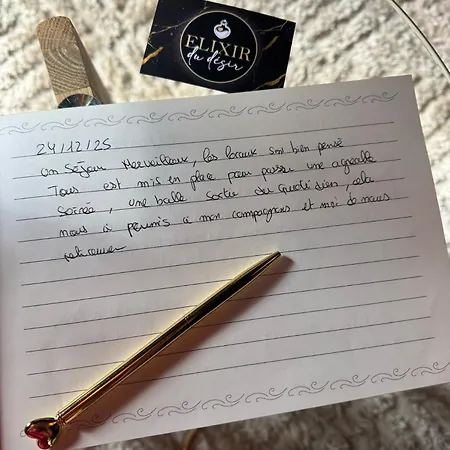 ELIXIR
du désir
24/12/25
Un Séjour Merveilleux, les locaux sont bien pensé
Tous est mis en place pour passer une agréable
Soirée, une balle sortie du quotidien, cela
nous à permis à mon compagnons et moi de nous
retrouver